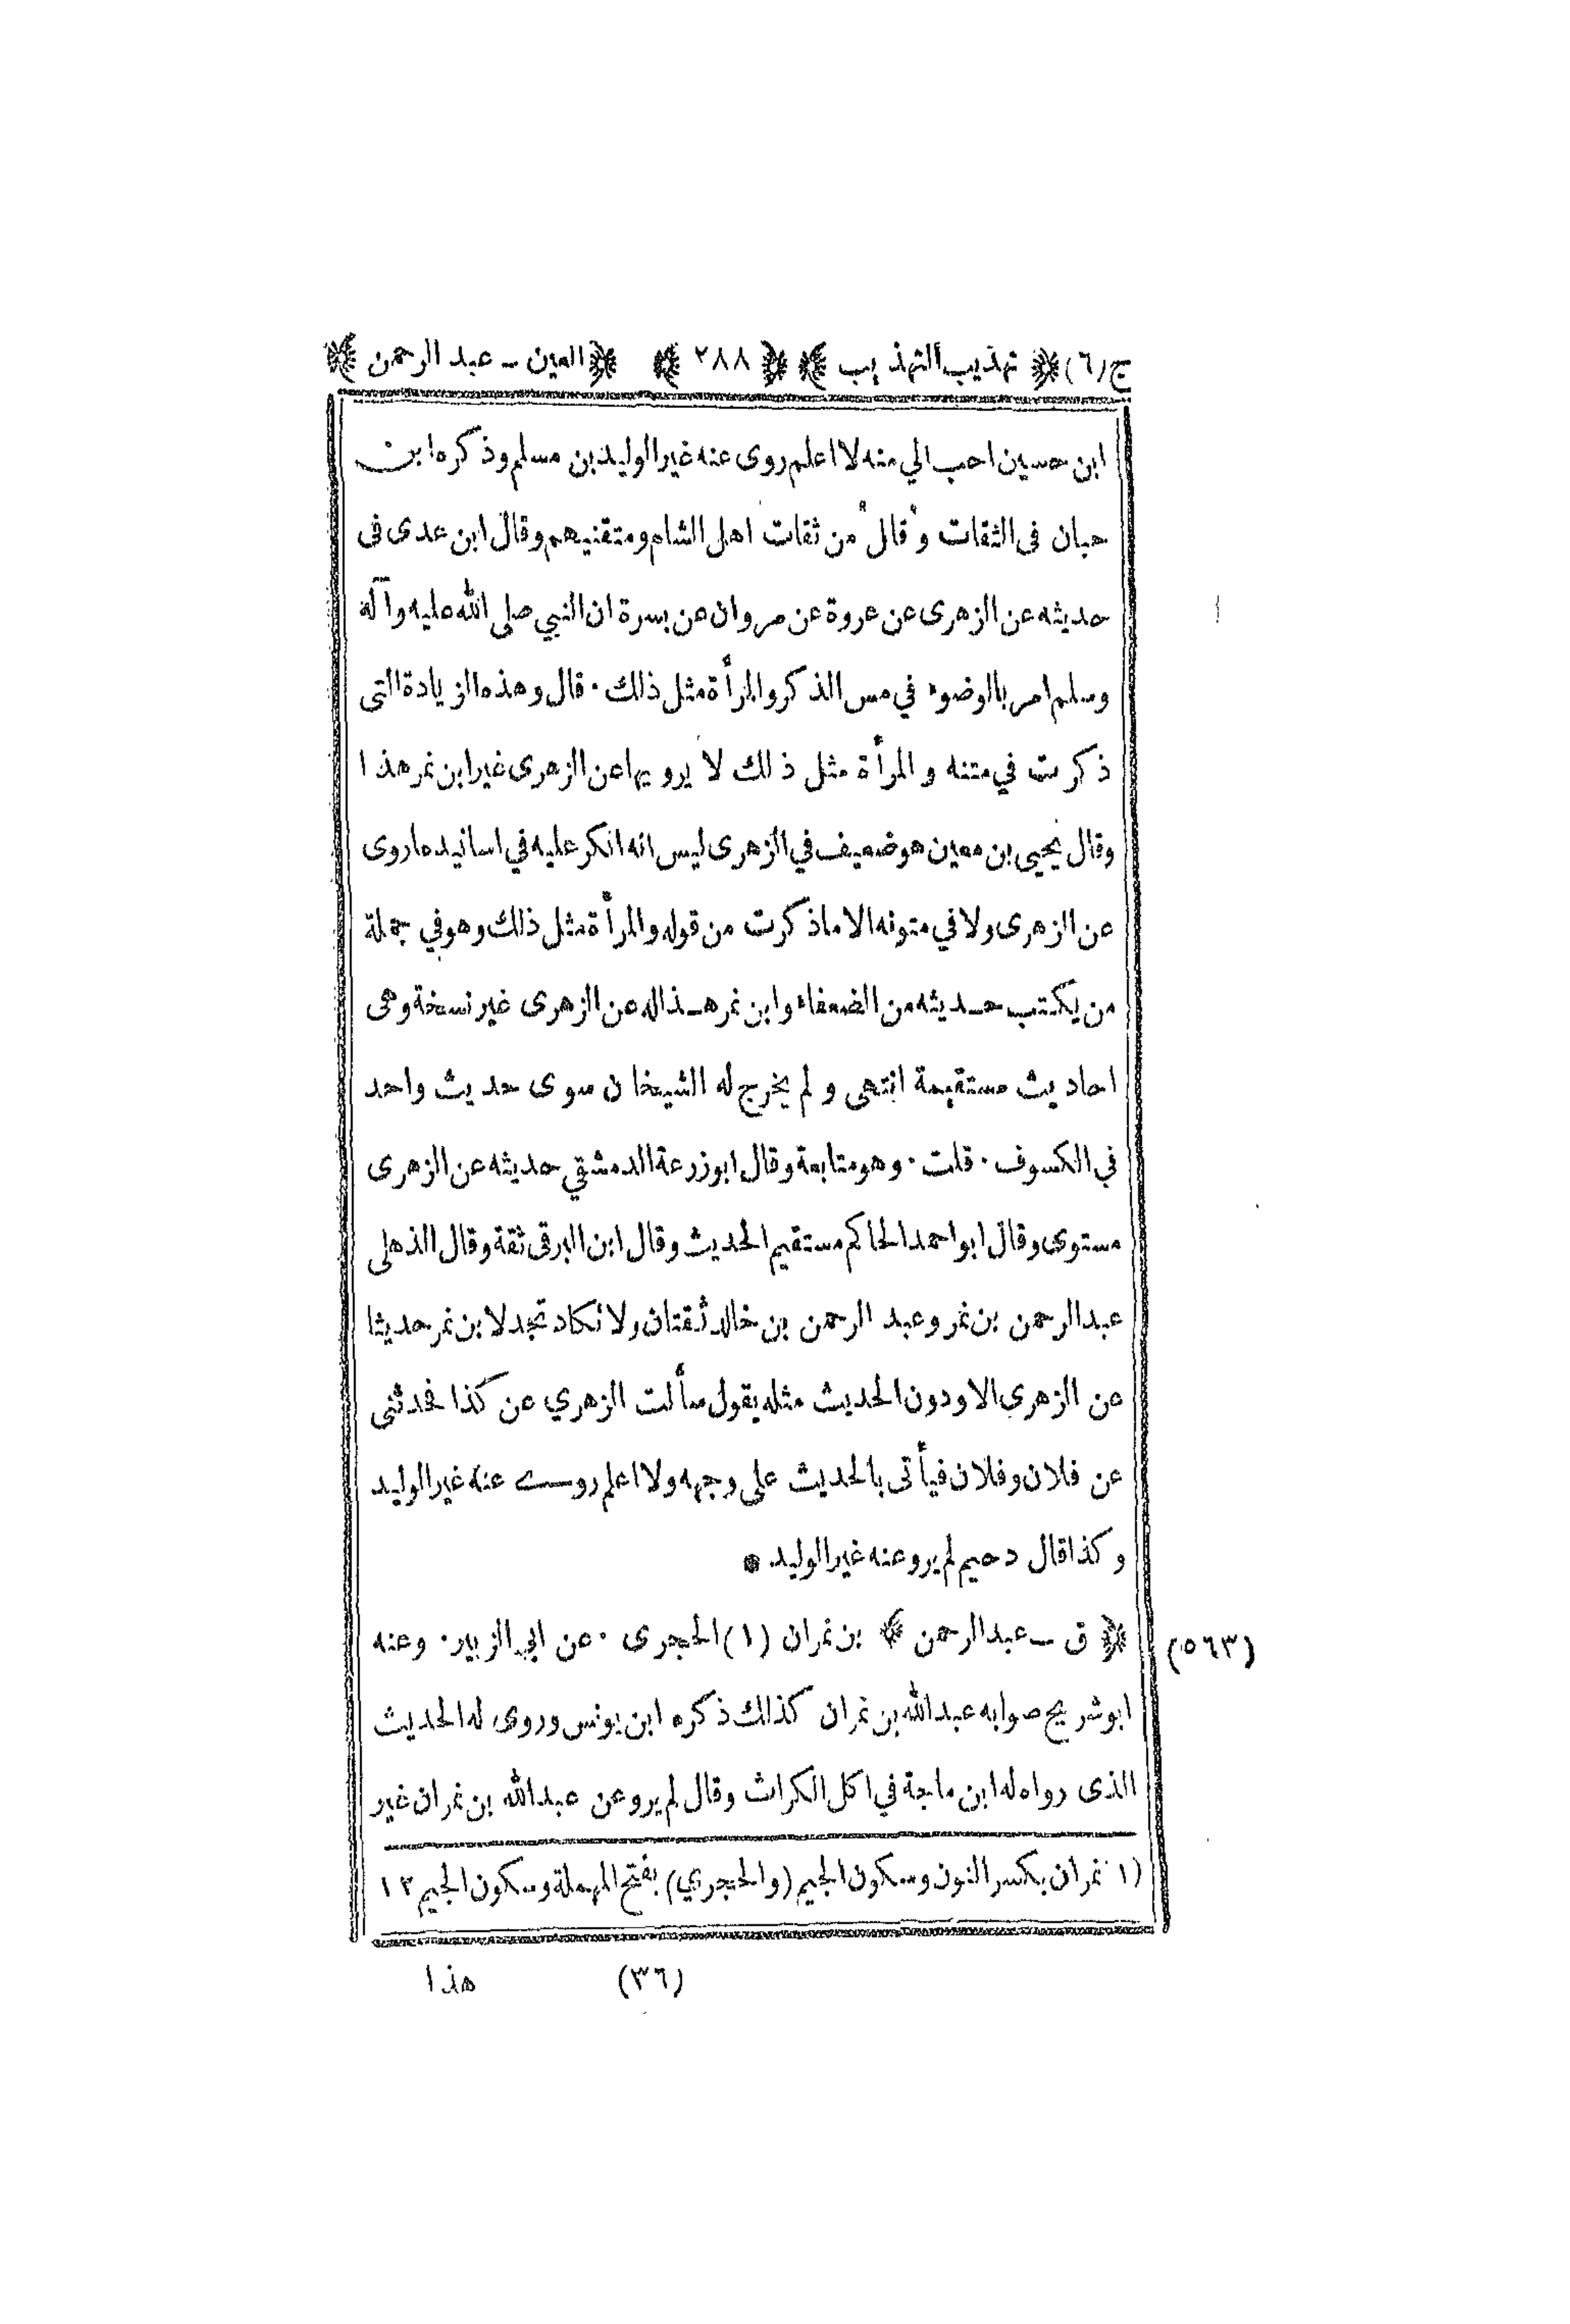 ج(٦) ﴿ تهذيب التهذيب ﴾ ﴿ ٢٨٨ ﴾ ﴿ العين - عبد الرحمن ﴾
ابن حسين احب الي منه لا اعلم روى عنه غير الوليد بن مسلم وذكره ابن
حبان فى الثقات وقال من ثقات اهل الشام ومتقنيهم وقال ابن عدى فى
حديثه عن الزهرى عن عروة عن مروان عن بسرة ان النبي صلى الله عليه وآله
وسلم امر بالوضوء في مس الذكر والمرأة مثل ذلك · قال وهذه الزيادة التى
ذكرت في متنه والمرأة مثل ذلك لا يرويها عن الزهرى غير ابن نمر هذا
وقال يحيى بن معين هو ضعيف في الزهرى ليس انه انكر عليه في اسانيده ما روى
عن الزهرى ولا في متونه الا ما ذكرت من قوله والمرأة مثل ذلك وهو في جملة
من يكتب حديثه من الضعفاء وابن نمر هذا له عن الزهرى غير نسخة وهى
احاديث مستقيمة انتهى ولم يخرج له الشيخان سوى حديث واحد
في الكسوف · قلت · وهو متابعة وقال ابو زرعة الدمشقي حديثه عن الزهرى
مستوى وقال ابو احمد الحاكم مستقيم الحديث وقال ابن البرقى ثقة وقال الذهلى
عبد الرحمن بن نمر وعبد الرحمن بن خالد ثقتان ولا تكاد تجد لابن نمر حديثا
عن الزهري الا ودون الحديث مثله يقول سألت الزهري عن كذا فحدثنى
عن فلان وفلان فيأتى بالحديث على وجهه ولا اعلم روى عنه غير الوليد
وكذا قال دحيم لم يرو عنه غير الوليد ●
(٥٦٣) ﴿ ق - عبد الرحمن ﴾ بن نمران (١) الحجرى · عن ابي الزبير · وعنه
ابو شريح صوابه عبد الله بن نمران كذلك ذكره ابن يونس وروى له الحديث
الذى رواه له ابن ماجة في اكل الكراث وقال لم يرو عن عبد الله بن نمران غير
(١ نمران بكسر النون وسكون الجيم (والحجري) بفتح المهملة وسكون الجيم ١٢
(٣٦) هذا